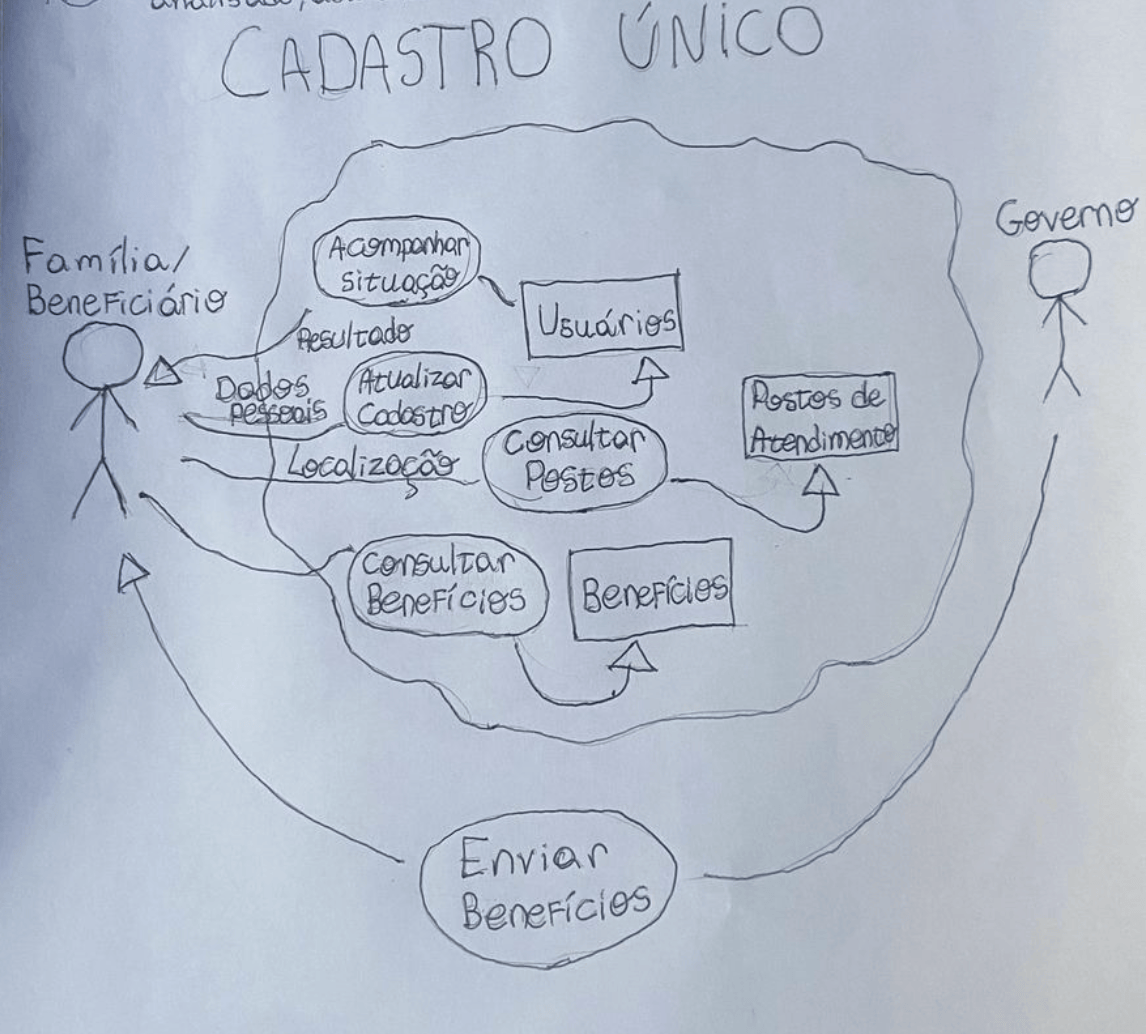 CADASTRO ÚNICO
Governo
Família/
Beneficiário
Acompanhar
Situação
Usuários
Resultado
Dados
Pessoais
Atualizar
Cadastro
Postos de
Atendimento
Localização
Consultar
Postos
Consultar
Benefícios
Benefícios
Enviar
Benefícios